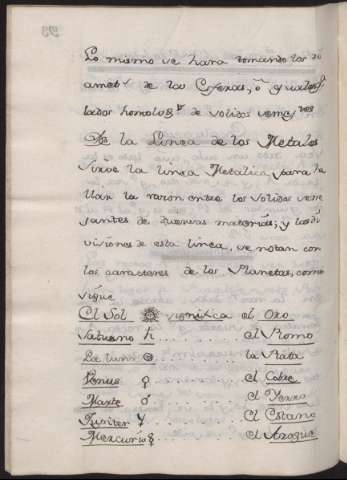 Lo mismo se hara tomando los di
amet.s de las Esferas, ô qualesq.a
lados homolog.s de solidos semej.tes
De la Linea de los Metales
Sirve la linea Metalica, para ha
llar la razon entre los solidos seme
jantes de diversas materias; y las di
visiones de esta linea, se notan con
los caracteres de los Planetas, como
sigue
El Sol ☉ significa el Oro
Saturno ♄ .......... el Plomo
La Luna .......... la Plata
Venus ♀ .......... el Cobre
Marte ♂ .......... el Yerro
Jupiter ♃ .......... el Estaño
Mercurio ☿ .......... el Azogue